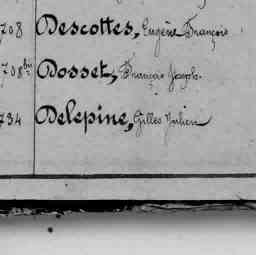 708 Descottes, Eugène François
708 bis Dosset, François Joseph
734 Delepine, Gilles Julien